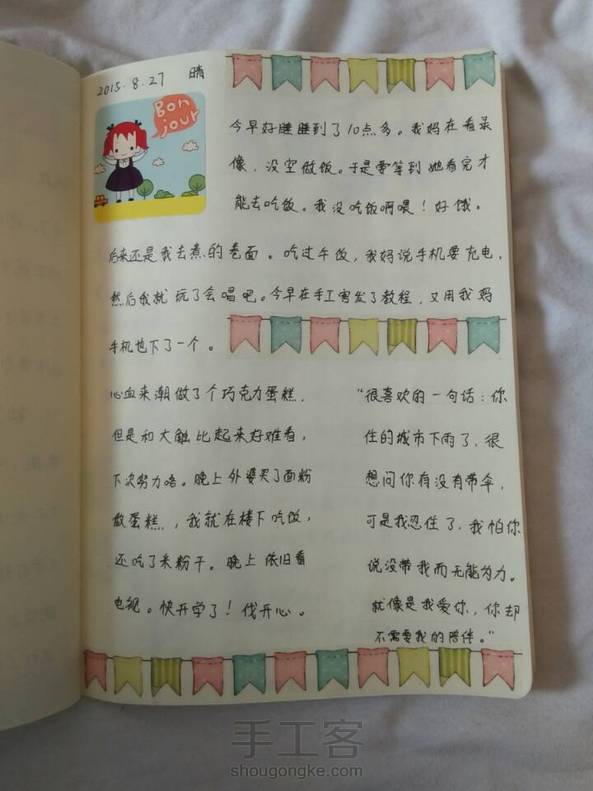 2015.8.27 晴
Bon
jour
今早好睡睡到了10点多。我妈在看录
像，没空做饭。于是要等到她看完才
能去吃饭。我没吃饭啊喂！好饿。
后来还是我去煮的卷面。吃过午饭，我妈说手机要充电，
然后我就玩了会唱吧。今早在手工客发了教程，又用我妈
手机也下了一个。
心血来潮做了个巧克力蛋糕，
但是和大触比起来好难看，
下次努力咯。晚上外婆买了面粉
做蛋糕，我就在楼下吃饭，
还吃了米粉干。晚上依旧看
电视。快开学了！伐开心。
"很喜欢的一句话：你
住的城市下雨了，很
想问你有没有带伞，
可是我忍住了，我怕你
说没带我而无能为力。
就像是我爱你，你却
不需要我的陪伴。"
手工客
shougongke.com